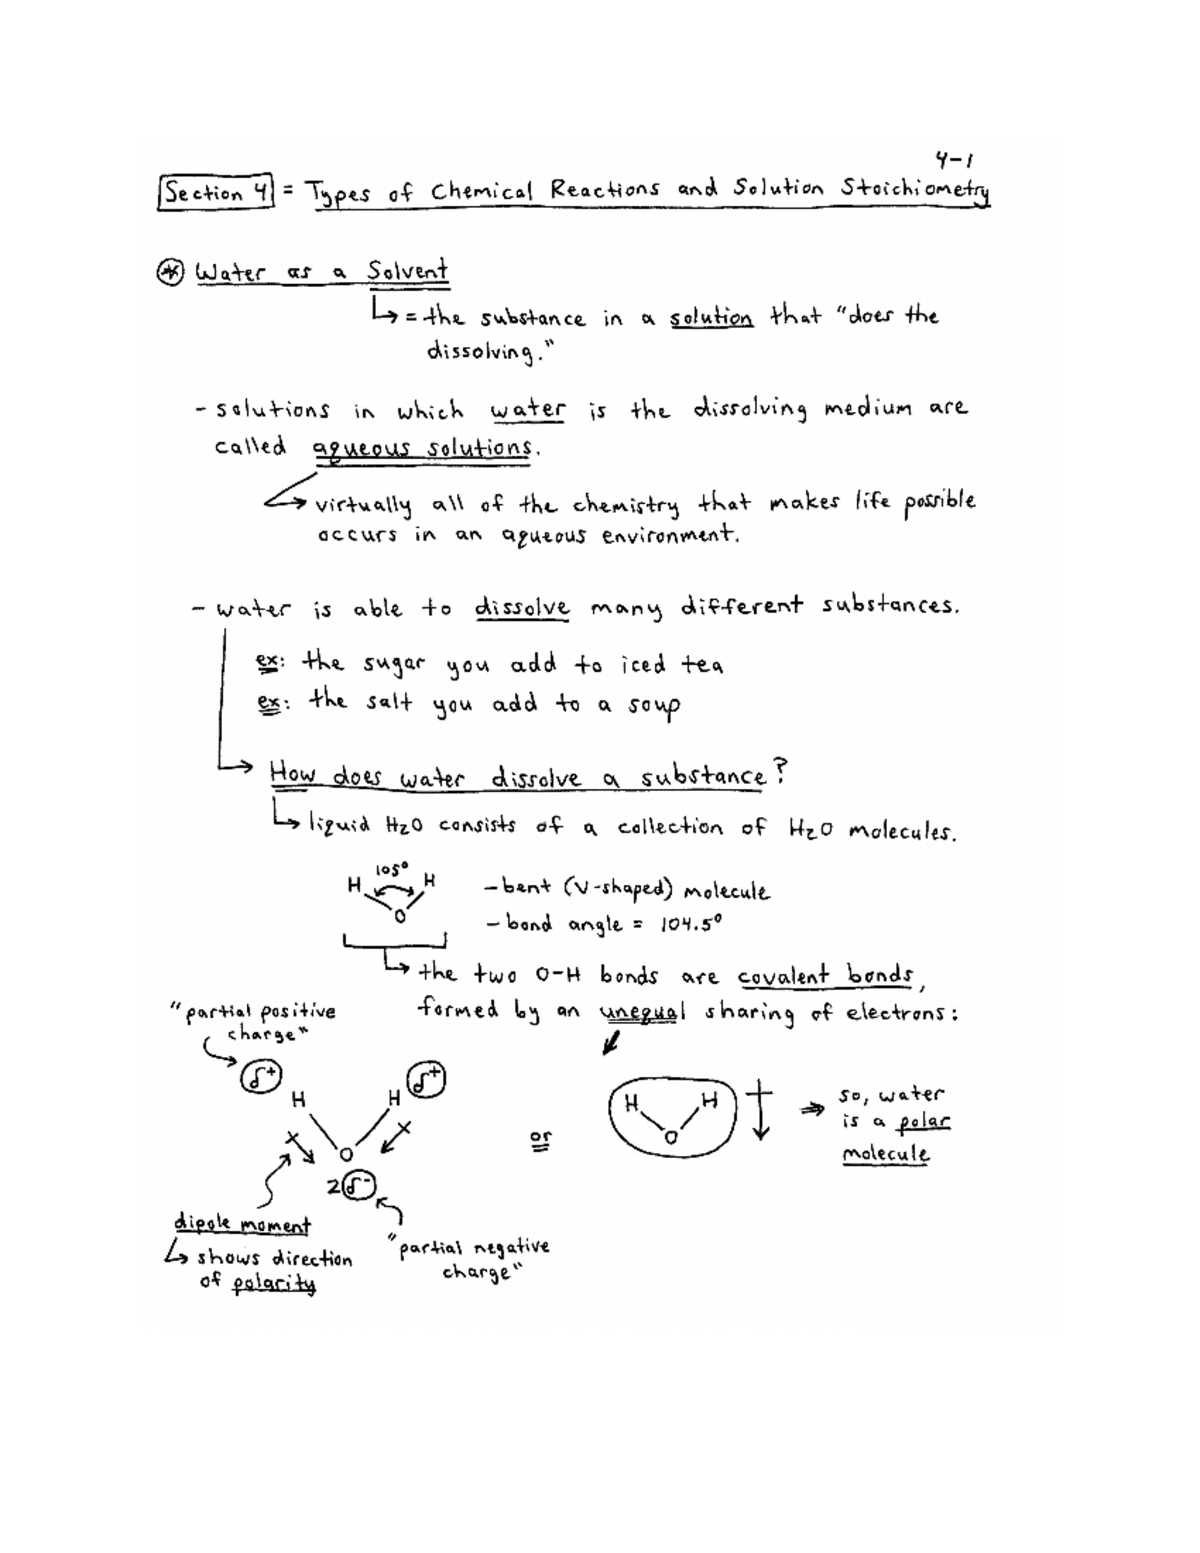 4-1
Section 4 = Types of Chemical Reactions and Solution Stoichiometry
* Water as a Solvent
↳ = the substance in a solution that "does the
dissolving."
- solutions in which water is the dissolving medium are
called aqueous solutions.
→ virtually all of the chemistry that makes life possible
occurs in an aqueous environment.
- water is able to dissolve many different substances.
ex: the sugar you add to iced tea
ex: the salt you add to a soup
→ How does water dissolve a substance?
↳ liquid H2O consists of a collection of H2O molecules.
105°
H H
O
- bent (V-shaped) molecule
- bond angle = 104.5°
↳ the two O-H bonds are covalent bonds,
formed by an unequal sharing of electrons:
"partial positive
charge"
δ+ δ+
H H
O
2δ-
or
H H
O
⇒ so, water
is a polar
molecule
dipole moment
↳ shows direction
of polarity
"partial negative
charge"